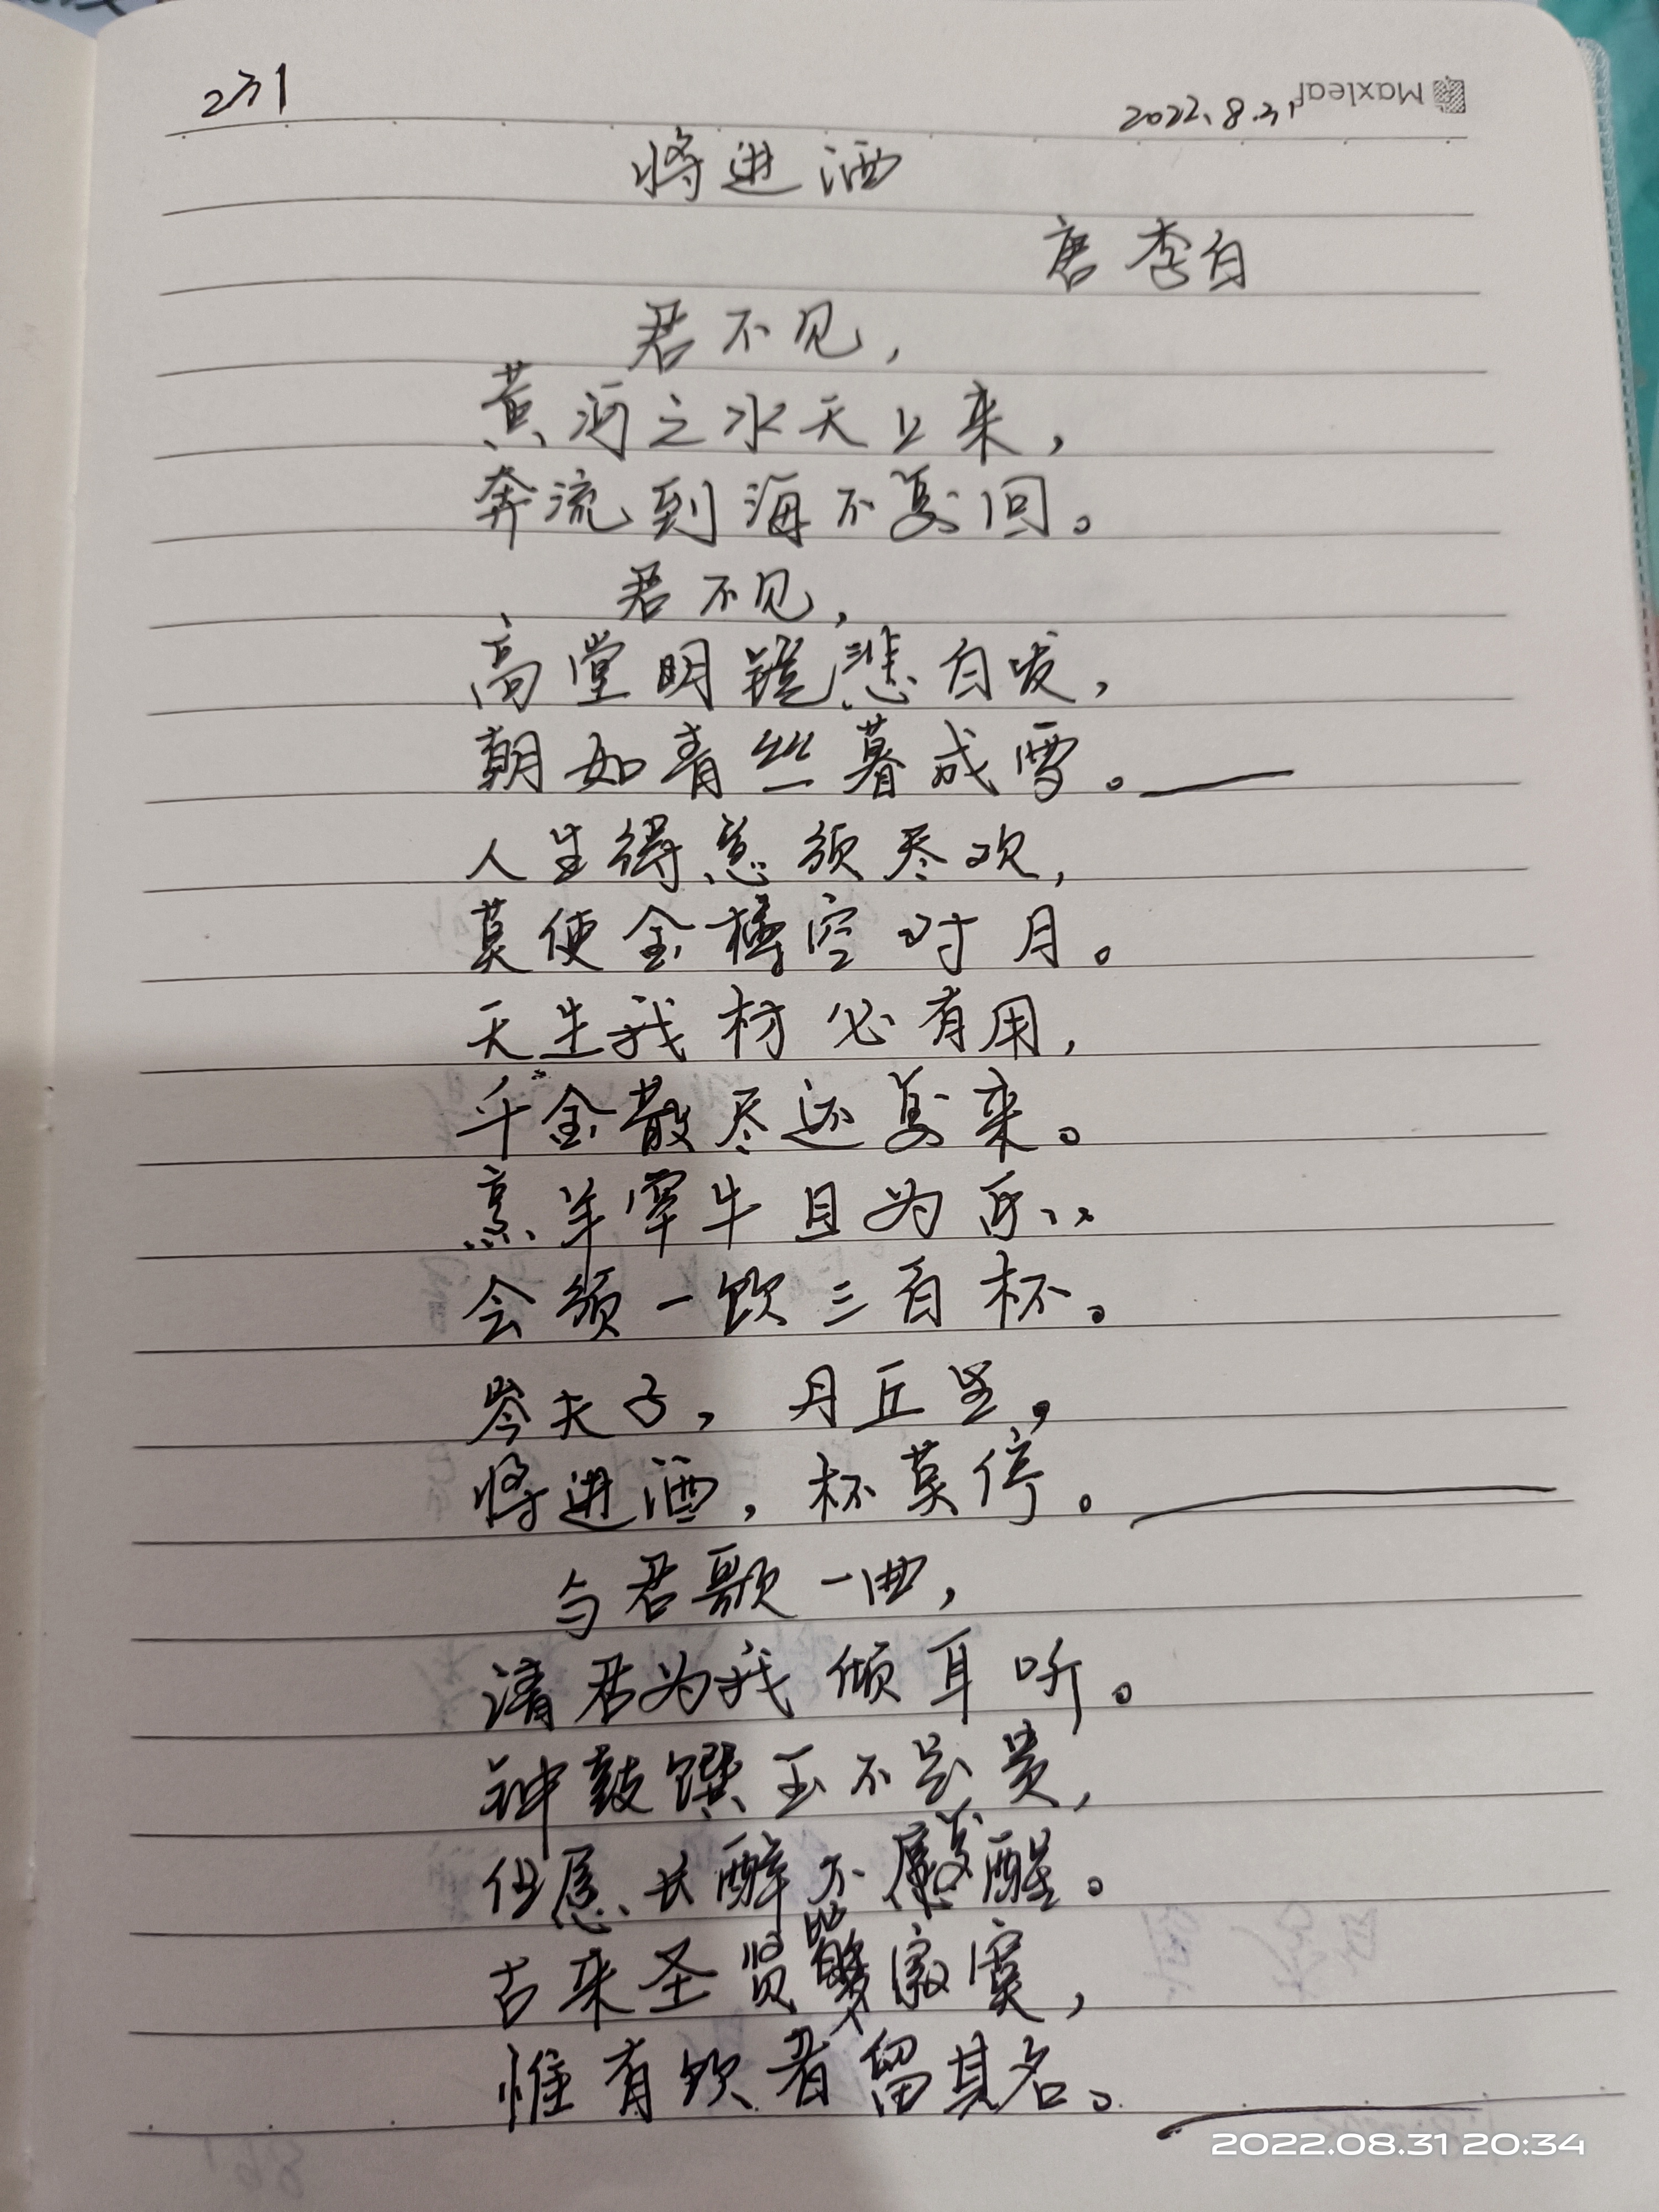 231
2022.8.31
Maxleaf
将进酒
唐 李白
君不见，
黄河之水天上来，
奔流到海不复回。
君不见，
高堂明镜悲白发，
朝如青丝暮成雪。
人生得意须尽欢，
莫使金樽空对月。
天生我材必有用，
千金散尽还复来。
烹羊宰牛且为乐，
会须一饮三百杯。
岑夫子，丹丘生，
将进酒，杯莫停。
与君歌一曲，
请君为我倾耳听。
钟鼓馔玉不足贵，
但愿长醉不愿醒。
古来圣贤皆寂寞，
惟有饮者留其名。
2022.08.31 20:34